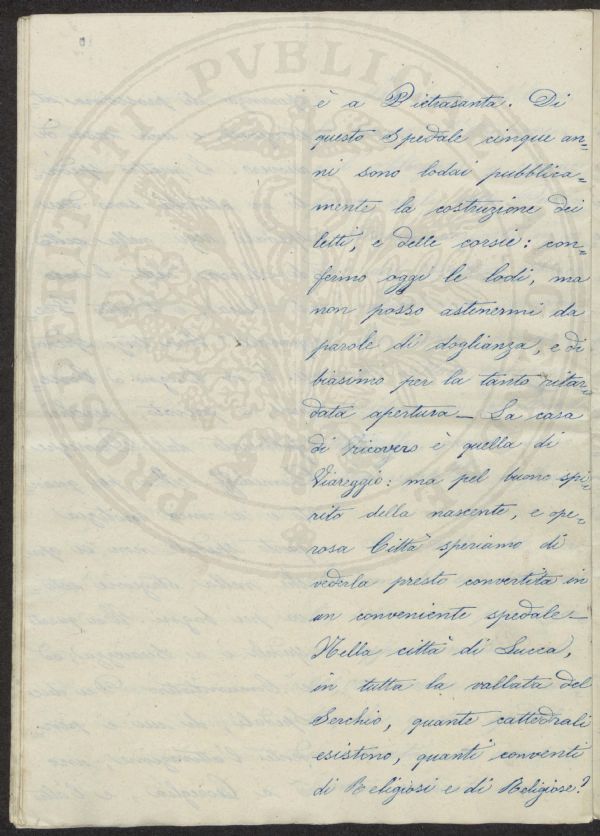 è a Pietrasanta. Di
questo Spedale cinque an=
ni sono lodai pubblica=
mente la costruzione dei
letti, e delle corsie: con=
fermo oggi le lodi, ma
non posso astenermi da
parole di doglianza, e di
biasimo per la tanto ritar=
data apertura_ La casa
di ricovero è quella di
Viareggio: ma pel buono spi=
rito della nascente, e ope=
rosa Città speriamo di
vederla presto convertita in
un conveniente spedale_
Nella città di Lucca,
in tutta la vallata del
Serchio, quante cattedrali
esistino, quanti conventi
di Religiosi e di Religiose?